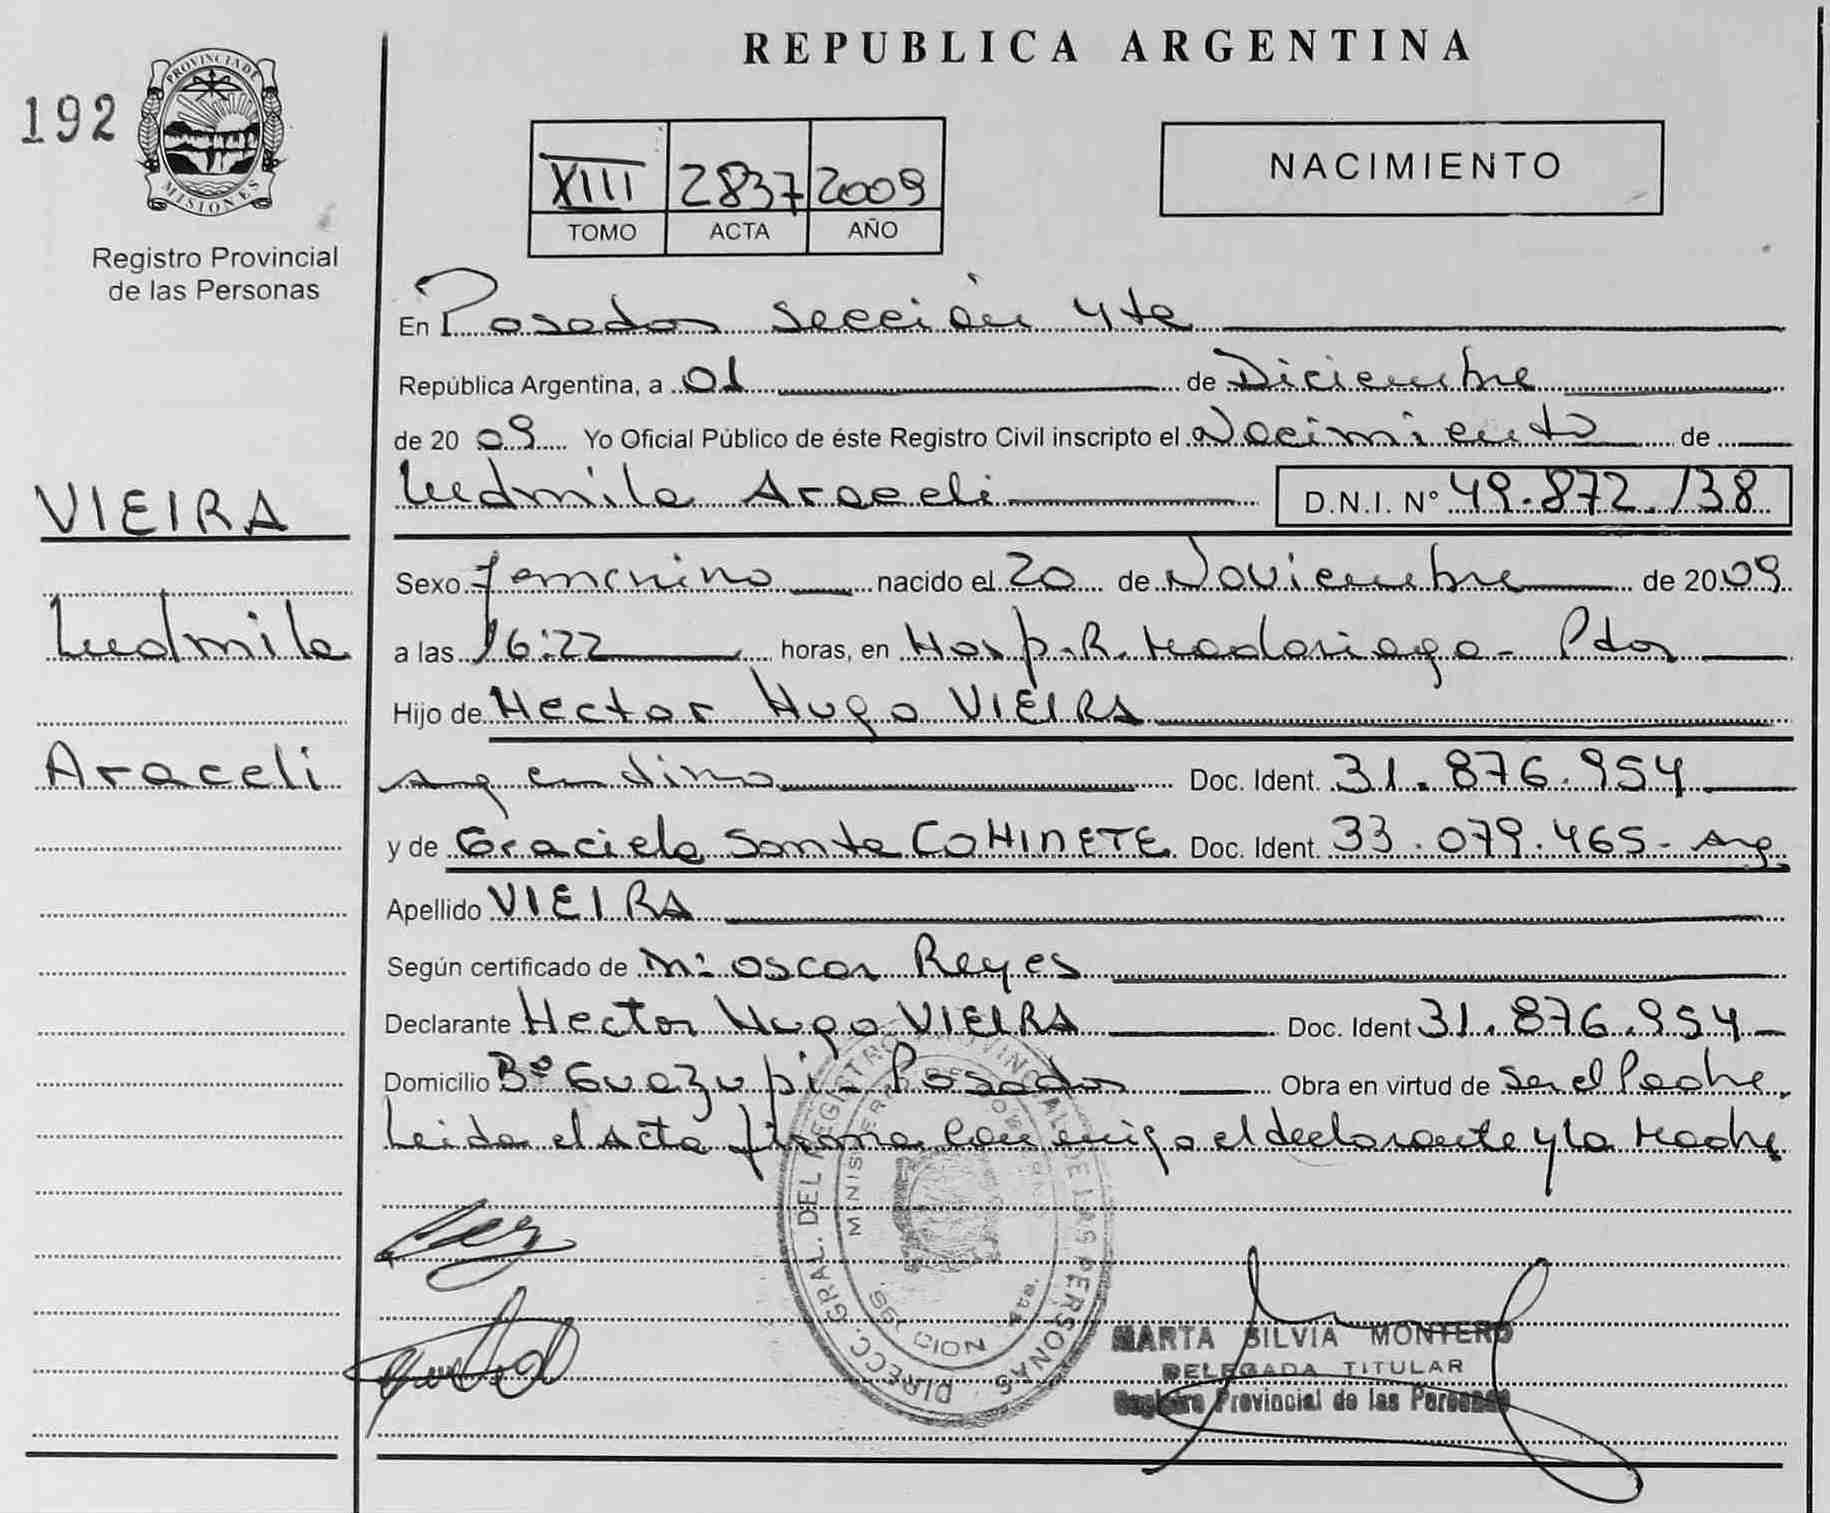 REPUBLICA ARGENTINA
192
PROVINCIA DE
MISIONES
Registro Provincial
de las Personas
XIII 2837 2009
TOMO ACTA AÑO
NACIMIENTO
En Posadas Sección 4ta
República Argentina, a 01 de Diciembre
de 20 09 Yo Oficial Público de éste Registro Civil inscripto el Nacimiento de
Ludmila Araceli D.N.I. Nº 49.872.138
VIEIRA
Ludmila
Araceli
Sexo femenino nacido el 20 de Noviembre de 20 09
a las 16:22 horas, en Hosp. R. Madariaga - Pdas
Hijo de Hector Hugo VIEIRA
Argentino Doc. Ident. 31.876.954
y de Graciela Santa COHINETE Doc. Ident. 33.079.465 - Arg.
Apellido VIEIRA
Según certificado de Oscar Reyes
Declarante Hector Hugo VIEIRA Doc. Ident 31.876.954
Domicilio Bº Guazupi - Posadas Obra en virtud de ser el Padre.
Leida el Acta firma conmigo el declarante y la Madre
DIRECC. GRAL. DEL REGISTRO PROVINCIAL DE LAS PERSONAS
MARTA SILVIA MONTERO
DELEGADA TITULAR
Registro Provincial de las Personas